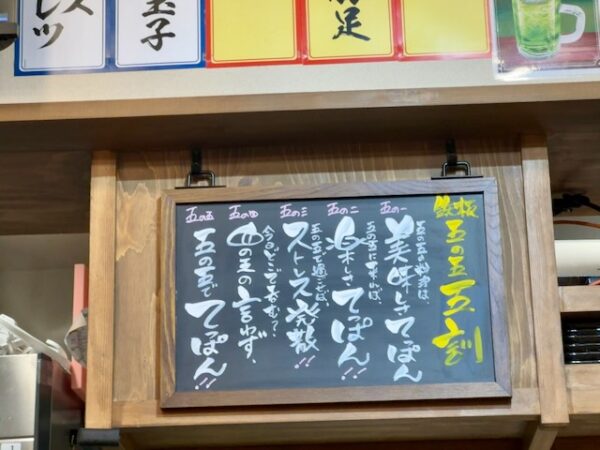 レス
ツ
玉子
足
鉄板
五の五 五訓
五の一
五の五の料理は、
美味しさてっぽん
五の二
五の五に来れば、
楽しさてっぽん!!
五の三
五の五で過ごせば、
ストレス発散!!
五の四
今日どこで呑む?
四の五の言わず、
五の五
五の五でてっぽん!!